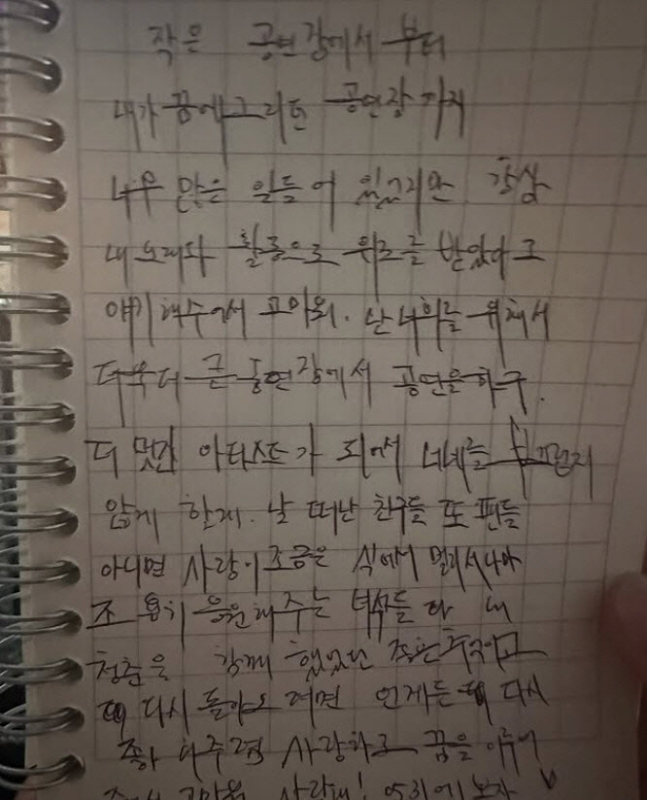 작은 공연장에서 부터
내가 꿈에그리던 공연장 까지
너무 많은 일들이 있었지만 항상
내 노래와 활동으로 위로를 받았다고
얘기해주어서 고마워. 난 너희를 위해서
더욱더 큰 공연장에서 공연을 하구.
더 멋진 아티스트가 되어서 너네를 부끄럽지
않게 할게. 날 떠난 친구들 또 팬들
아니면 사랑이 조금은 식어서 멀리서나마
조용히 응원해주는 녀석들 다 내
청춘을 함께 했었던 좋은 추억이고
다시 돌아오려면 언제든 다시
좋아해주렴 사랑하고 꿈을 이루어
고마워 사랑해! 보자